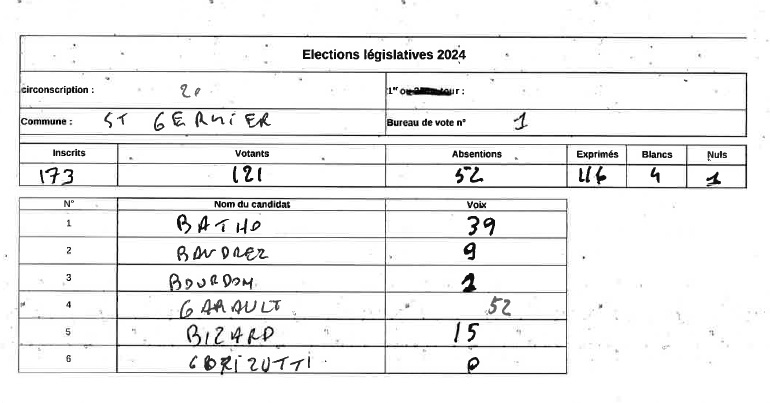 Elections législatives 2024
circonscription : 2e 1er ou 2ème tour :
Commune : ST GERMIER Bureau de vote n° 1
Inscrits Votants Absentions Exprimés Blancs Nuls
173 121 52 116 4 1
N° Nom du candidat Voix
1 BATHO 39
2 BAUDREZ 9
3 BOURDOM 1
4 GARAULT 52
5 BIZARD 15
6 GORIZUTTI 0